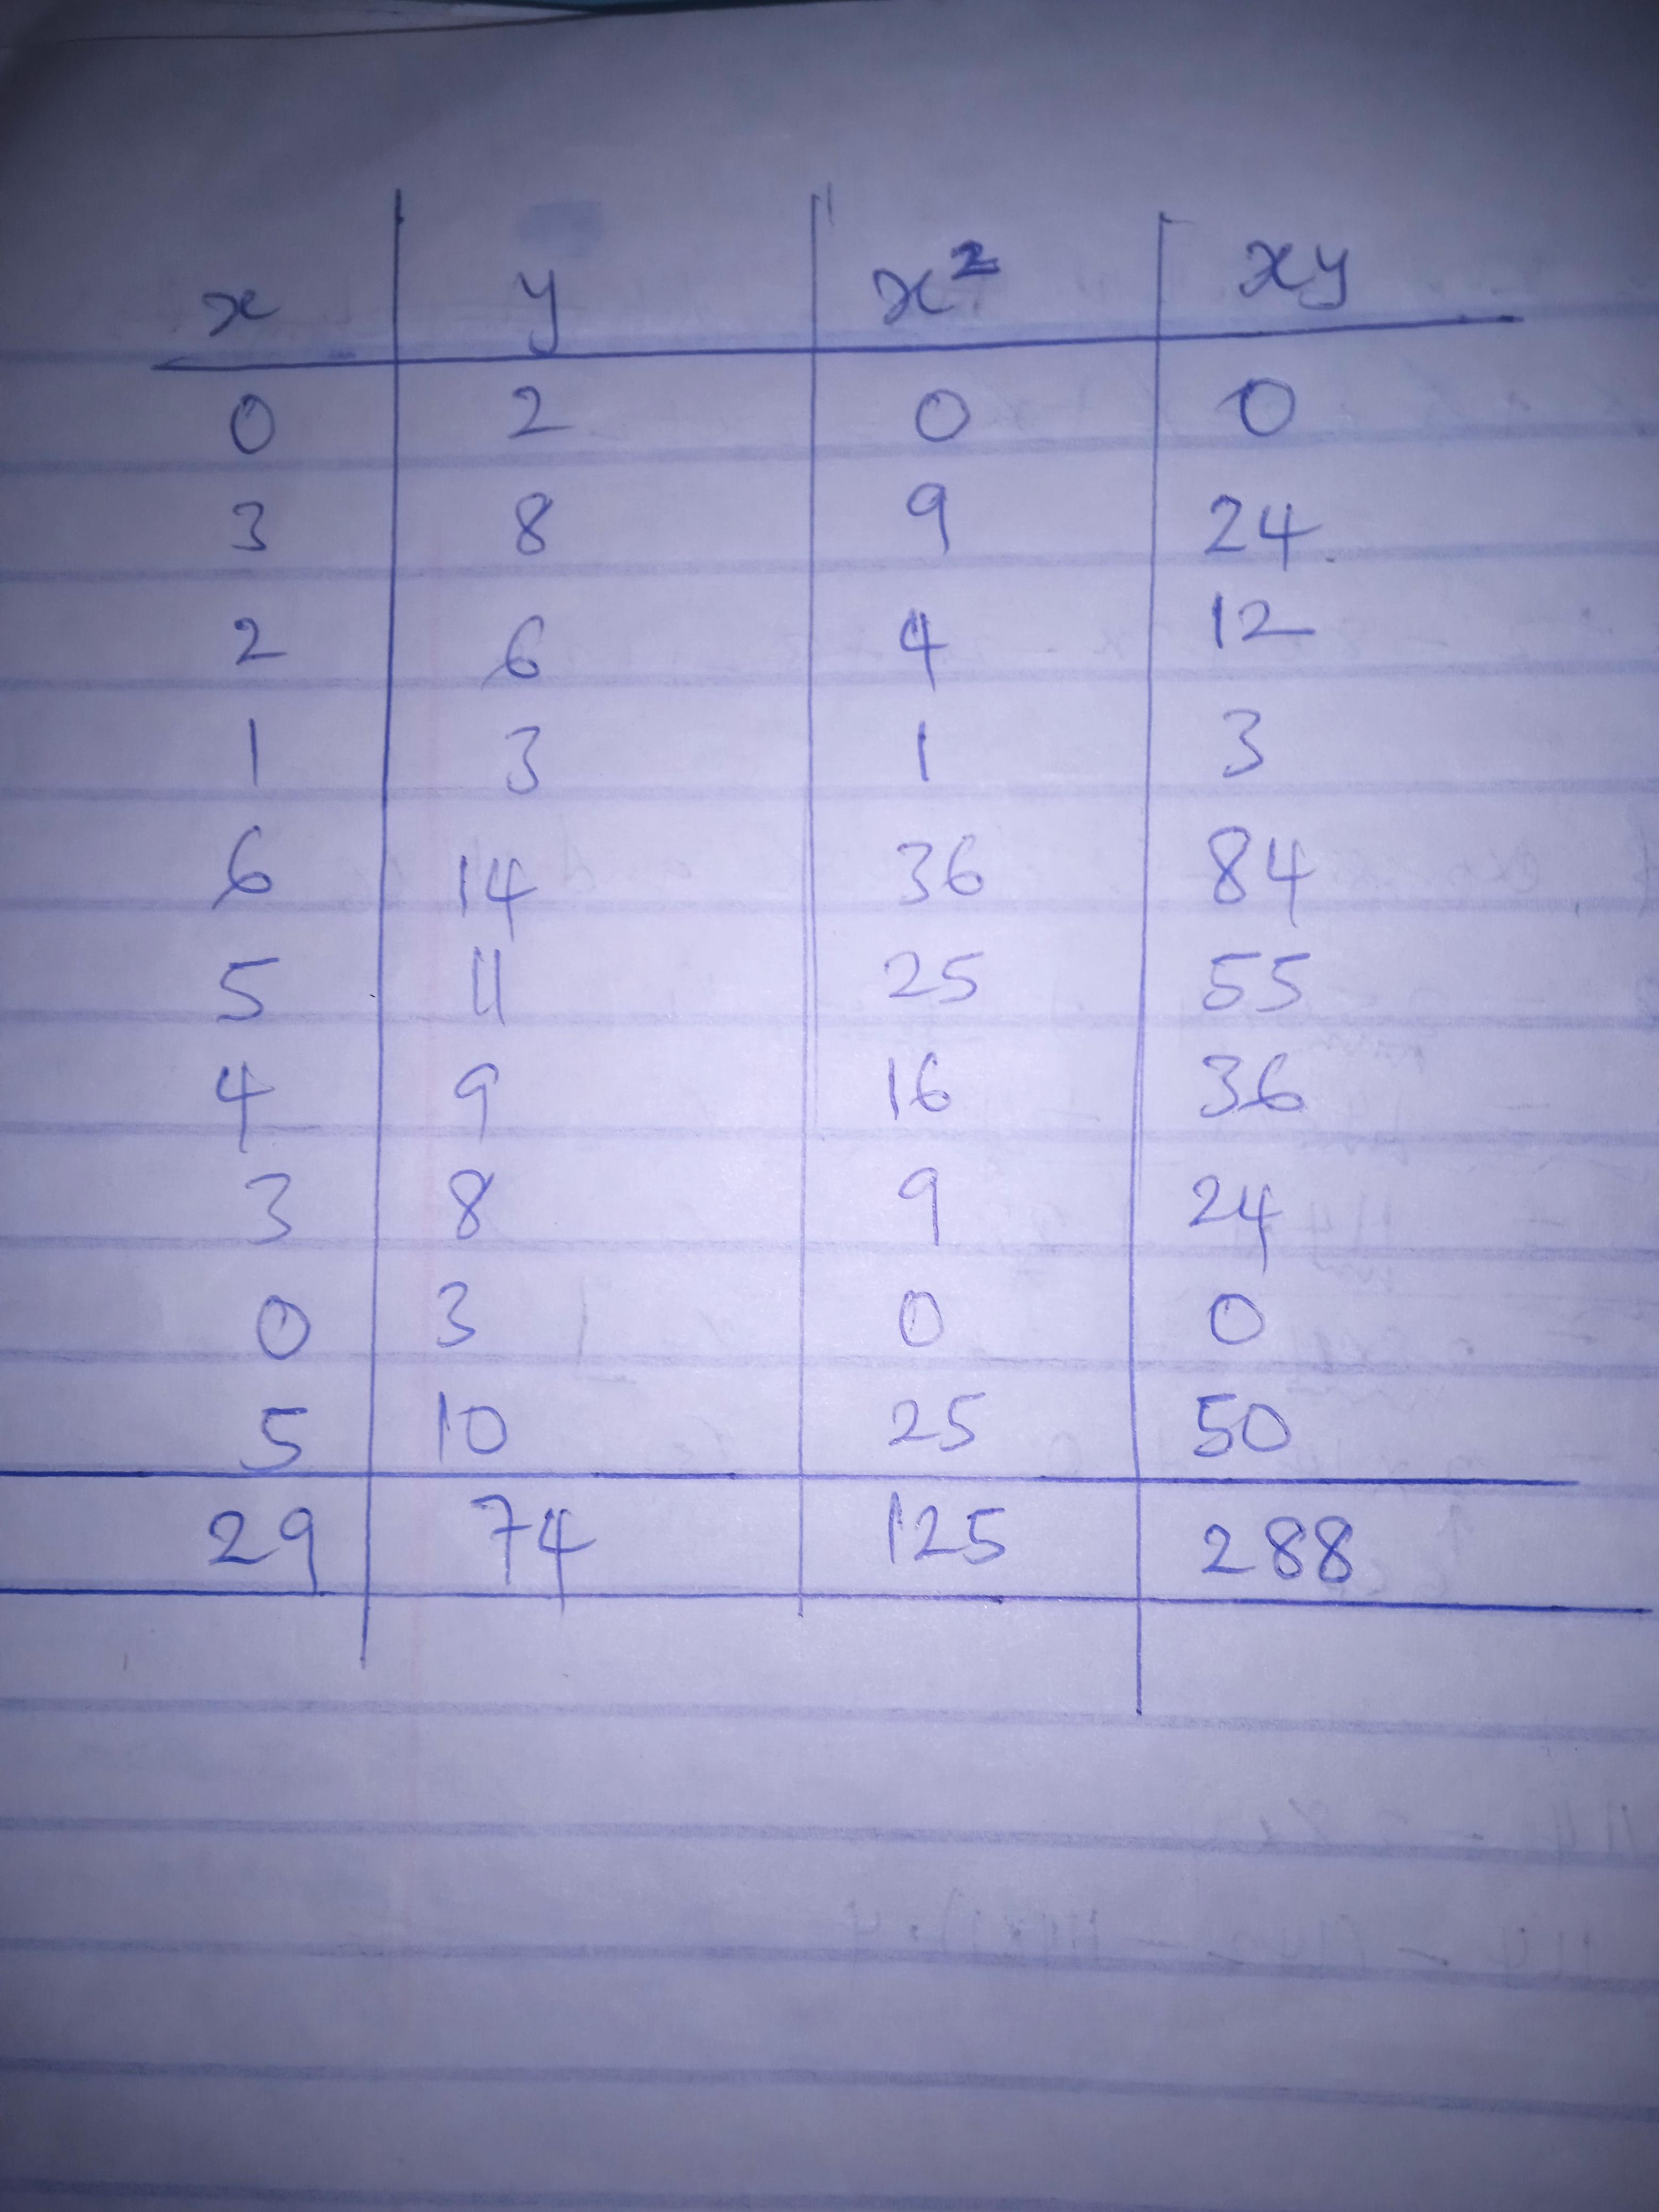 x y x² xy
0 2 0 0
3 8 9 24
2 6 4 12
1 3 1 3
6 14 36 84
5 11 25 55
4 9 16 36
3 8 9 24
0 3 0 0
5 10 25 50
29 74 125 288